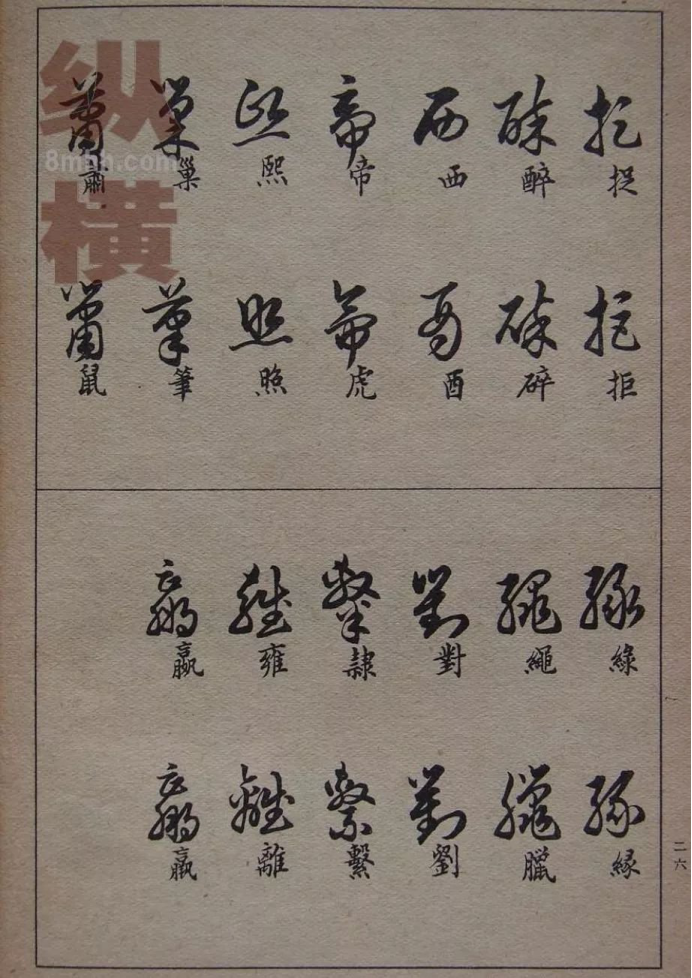 捉
拒
醉
碎
西
酉
帝
虎
熙
照
巢
筆
鼠
綠
緣
繩
臘
對
劉
隸
繫
雍
離
贏
羸
二六
纵横
8mhh.com